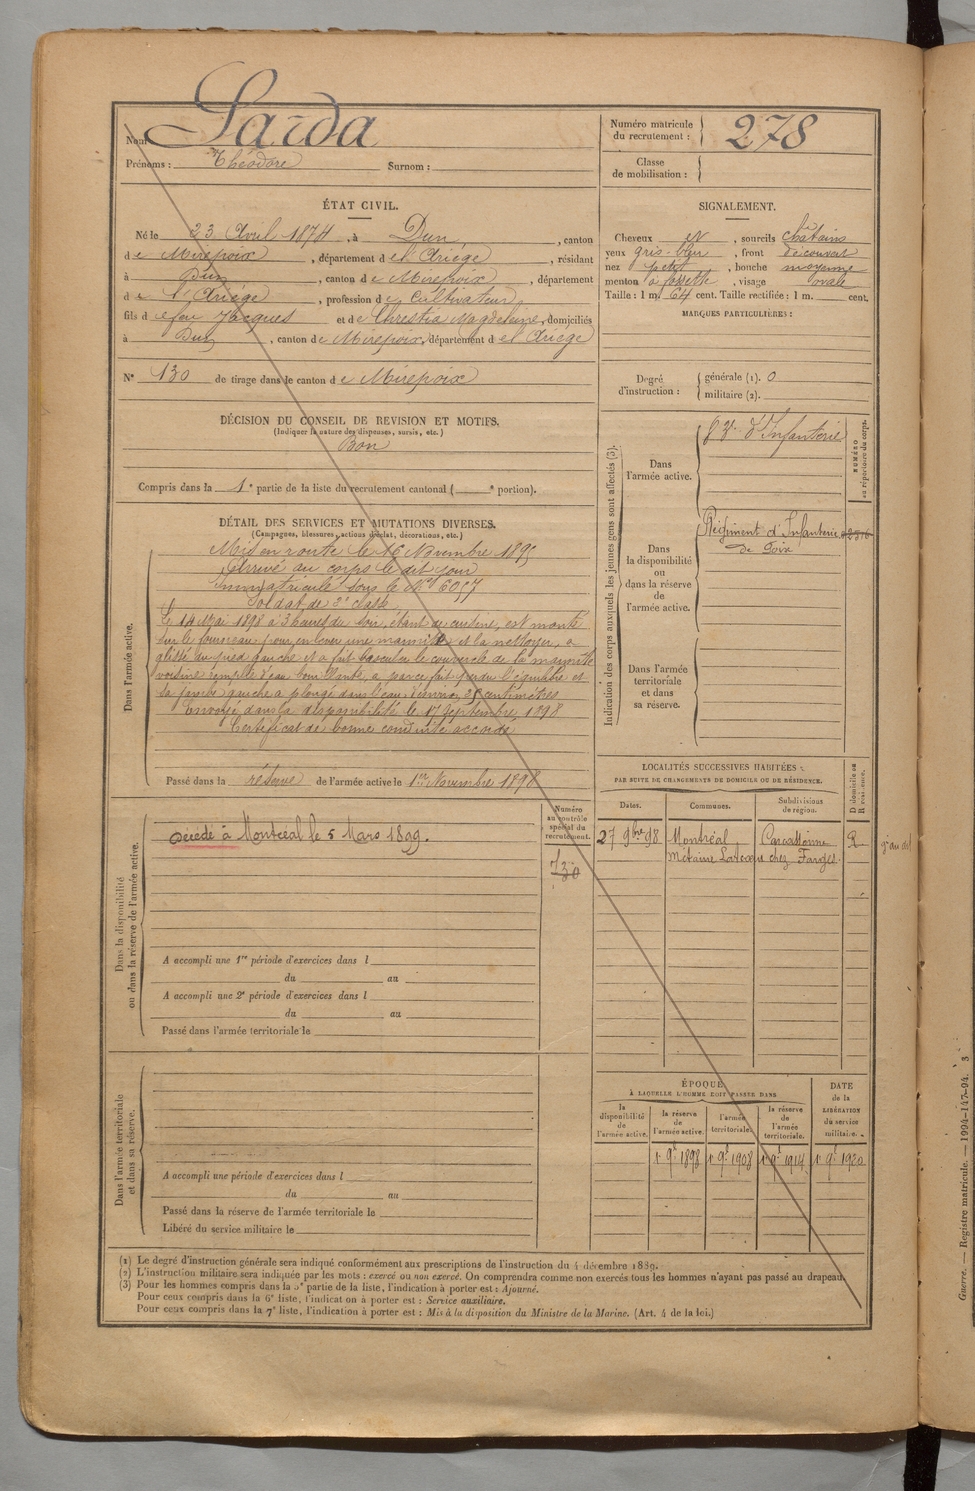 Nom Sarda
Prénoms : Théodore Surnom :
Numéro matricule du recrutement : 278
Classe de mobilisation :
ÉTAT CIVIL.
Né le 23 Avril 1874, à Dun, canton
de Mirepoix, département de l'Ariège, résidant
à Dun, canton de Mirepoix, département
de l'Ariège, profession de Cultivateur
fils de feu Jacques et de Chrestia Magdeleine, domiciliés
à Dun, canton de Mirepoix, département de l'Ariège
N° 130 de tirage dans le canton de Mirepoix
SIGNALEMENT.
Cheveux et, sourcils châtains
yeux gris-bleu, front découvert
nez petit, bouche moyenne
menton à fossette, visage ovale
Taille : 1 m. 64 cent. Taille rectifiée : 1 m. cent.
MARQUES PARTICULIÈRES :
Degré d'instruction : générale (1). 0
militaire (2).
DÉCISION DU CONSEIL DE REVISION ET MOTIFS.
(Indiquer la nature des dispenses, sursis, etc.)
Bon
Compris dans la 1e partie de la liste du recrutement cantonal ( e portion).
DÉTAIL DES SERVICES ET MUTATIONS DIVERSES.
(Campagnes, blessures, actions d'éclat, décorations, etc.)
Dans l'armée active.
Mis en route le 16 Novembre 1895
Arrivé au corps le dit jour
immatriculé sous le N° 6057
Soldat de 2e classe
Le 14 Mai 1898 à 3 heures du soir, étant de cuisine, est monté
sur le fourneau pour enlever une marmite et la nettoyer, a
glissé du pied gauche et a fait basculer le couvercle de la marmite
voisine remplie d'eau bouillante, a parce fait perdu l'équilibre et
sa jambe gauche a plongé dans l'eau d'environ 35 centimètres
Envoyé dans la disponibilité le 17 Septembre 1898
Certificat de bonne conduite accordé
Passé dans la réserve de l'armée active le 1er Novembre 1898
Indication des corps auxquels les jeunes gens sont affectés (3).
NUMÉRO au répertoire du corps.
Dans l'armée active.
d'Infanterie
Dans la disponibilité ou dans la réserve de l'armée active.
Régiment d'Infanterie
de Foix
Dans l'armée territoriale et dans sa réserve.
LOCALITÉS SUCCESSIVES HABITÉES
PAR SUITE DE CHANGEMENTS DE DOMICILE OU DE RÉSIDENCE.
D domicile ou R résidence.
Dates. Communes. Subdivisions de région.
27 9bre 98 Montréal Carcassonne R.
métairie chez Farges.
Dans la disponibilité ou dans la réserve de l'armée active.
Numéro au contrôle spécial du recrutement.
Décédé à Montréal le 5 Mars 1899.
730
A accompli une 1re période d'exercices dans l
du au
A accompli une 2e période d'exercices dans l
du au
Passé dans l'armée territoriale le
Dans l'armée territoriale et dans sa réserve.
A accompli une période d'exercices dans l
du au
Passé dans la réserve de l'armée territoriale le
Libéré du service militaire le
ÉPOQUE
À LAQUELLE L'HOMME DOIT PASSER DANS
la disponibilité de l'armée active. la réserve de l'armée active. l'armée territoriale. la réserve de l'armée territoriale.
DATE de la LIBÉRATION du service militaire.
1 9e 1898 1 9e 1908 1 9e 1914 1 9e 1920
(1) Le degré d'instruction générale sera indiqué conformément aux prescriptions de l'instruction du 4 décembre 1889.
(2) L'instruction militaire sera indiquée par les mots : exercé ou non exercé. On comprendra comme non exercés tous les hommes n'ayant pas passé au drapeau.
(3) Pour les hommes compris dans la 5e partie de la liste, l'indication à porter est : Ajourné.
Pour ceux compris dans la 6e liste, l'indication à porter est : Service auxiliaire.
Pour ceux compris dans la 7e liste, l'indication à porter est : Mis à la disposition du Ministre de la Marine. (Art. 4 de la loi.)
Guerre. — Registre matricule. — 1994-147-94. 3